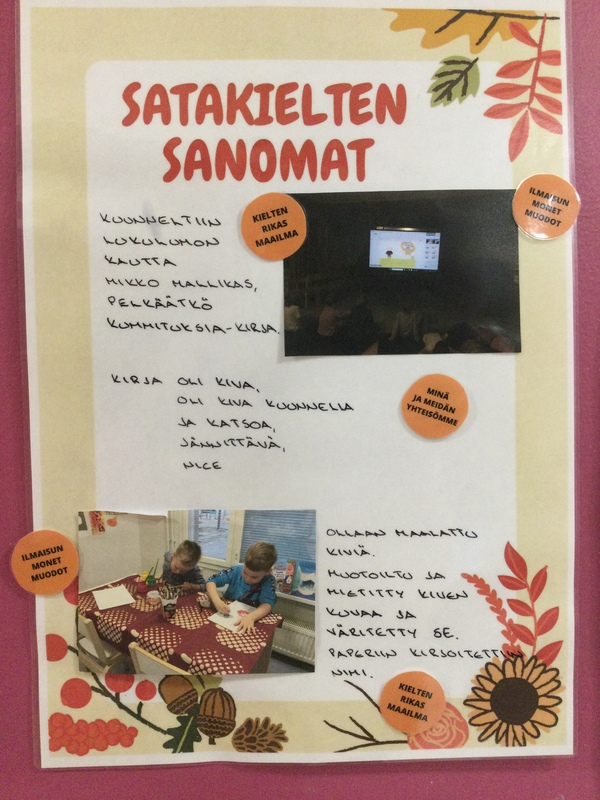 SATAKIELTEN
SANOMAT
KUUNNELTIIN
LUKULUMON
KAUTTA
MIKKO MALLIKAS,
PELKÄÄTKÖ
KUMMITUKSIA-KIRJA.
KIELTEN
RIKAS
MAAILMA
ILMAISUN
MONET
MUODOT
KIRJA OLI KIVA,
OLI KIVA KUUNNELLA
JA KATSOA,
JÄNNITTÄVÄ,
NICE
MINÄ
JA MEIDÄN
YHTEISÖMME
ILMAISUN
MONET
MUODOT
OLLAAN MAALATTU
KIVIÄ.
MUOTOILTU JA
MIETITTY KIVEN
KUVAA JA
VÄRITETTY SE.
PAPERIIN KIRJOITETTIIN
NIMI.
KIELTEN
RIKAS
MAAILMA